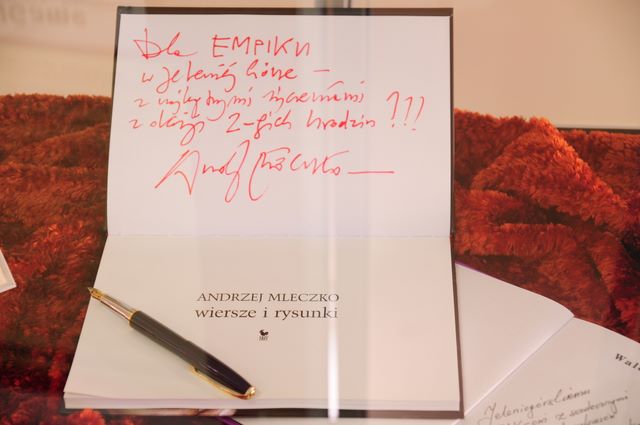 Dla EMPIKU
w Jeleniej Górze –
z najlepszymi życzeniami
z okazji 2-gich urodzin !!!
Andrzej Mleczko
ANDRZEJ MLECZKO
wiersze i rysunki
Jeleniogórskiemu
z serdecznymi